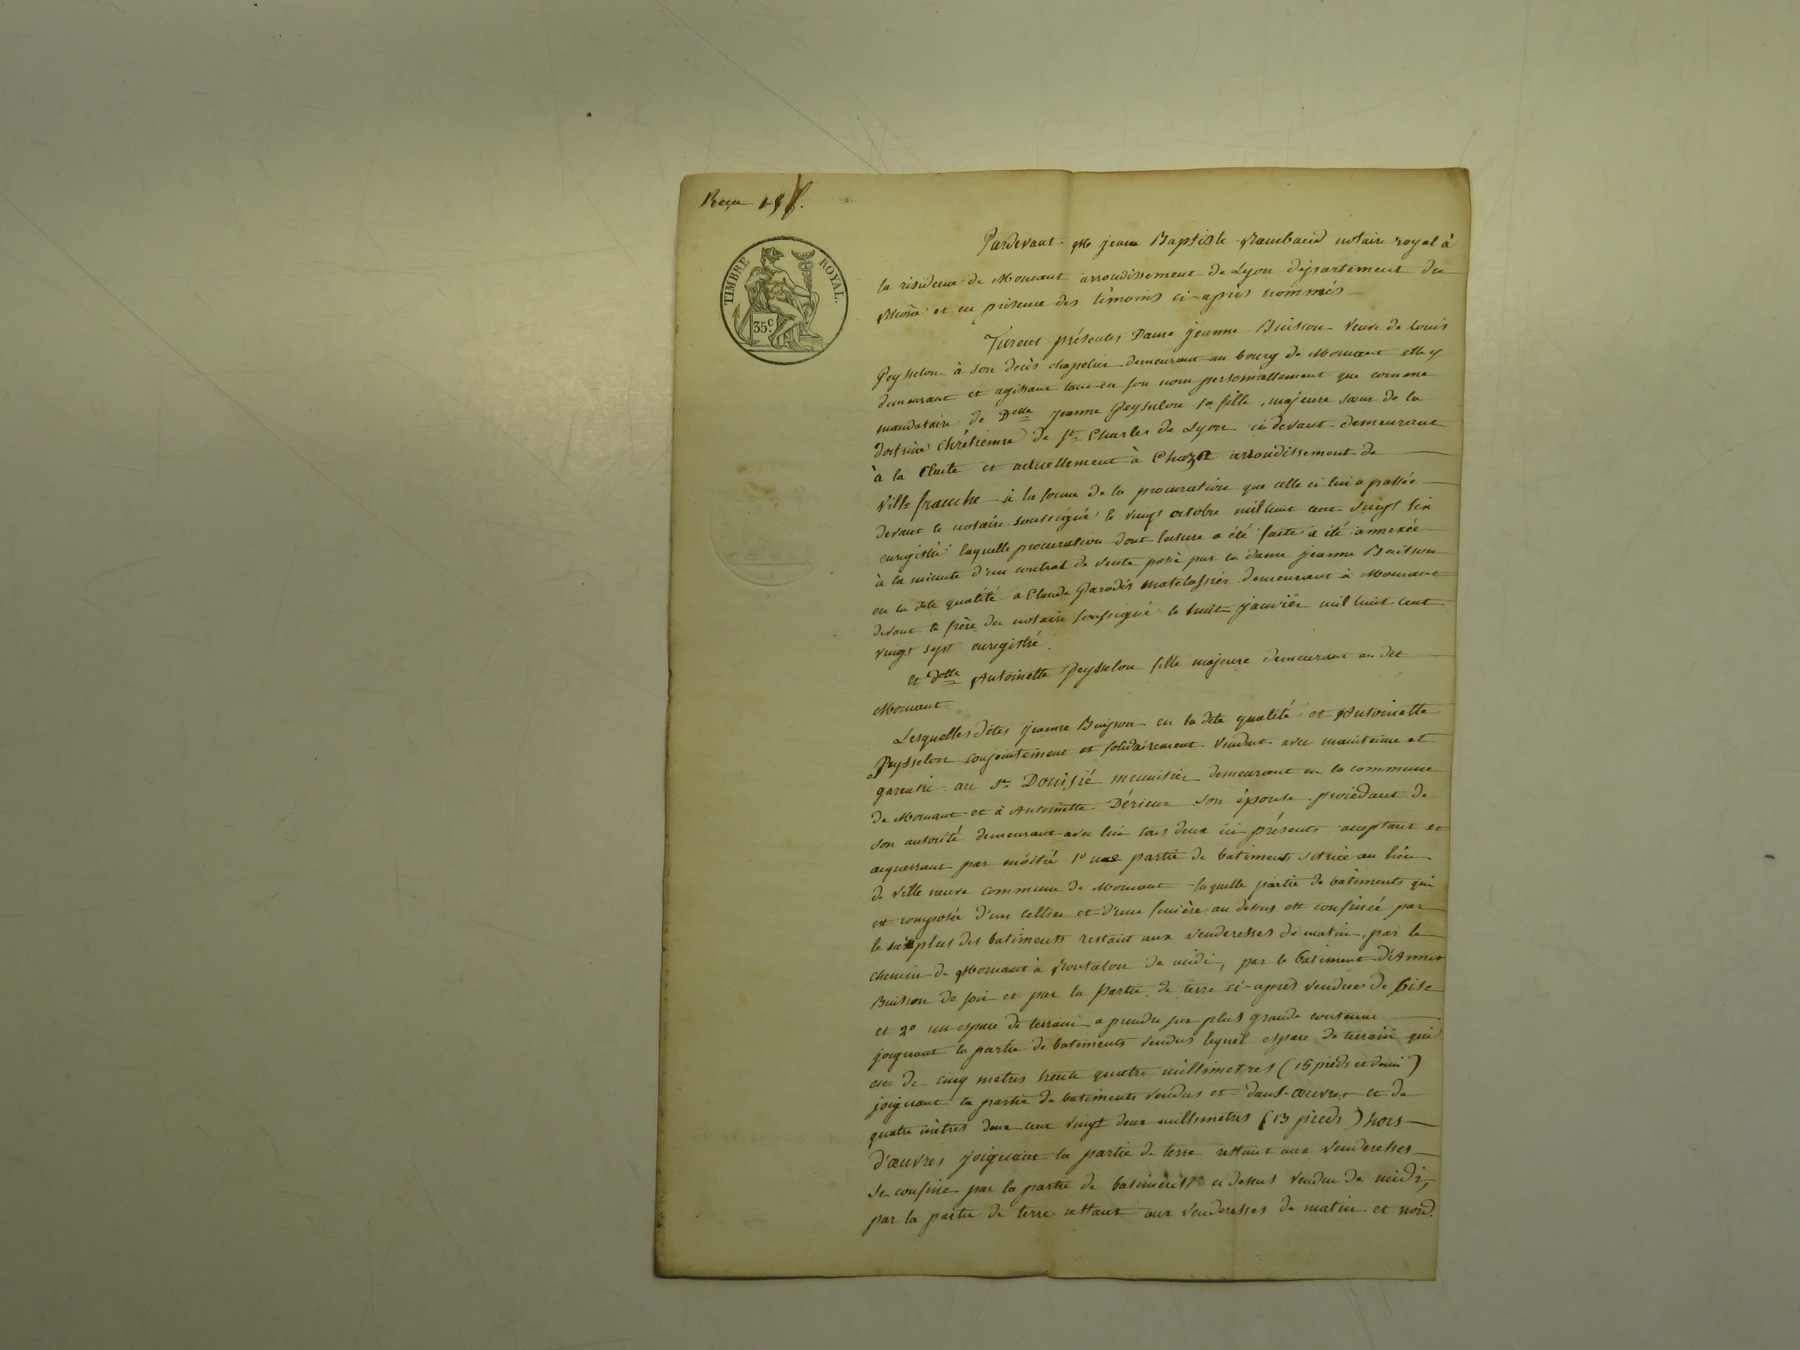 Reçu 15 f.
TIMBRE ROYAL.
35 c.
Pardevant Me jean Baptiste Raimbaud notaire royal à
la résidence de Mornant arrondissement de Lyon département du
Rhône et en présence des témoins ci-après nommés
Furent présentes Dame jeanne Buisson veuve de louis
Peysselon à son décès chapelier demeurant au bourg de Mornant elle y
demeurant et agissant tant en son nom personnellement que comme
mandataire de Delle jeanne Peysselon sa fille, majeure soeur de la
doctrine Chrétienne de St Charles de Lyon ci devant demeurant
à la et actuellement à Chazet arrondissement de
Villefranche à la forme de la procuration que celle ci lui a passée
devant le notaire soussigné le vingt octobre mil huit cent vingt six
enregistré laquelle procuration dont lecture a été faite a été annexée
à la minute d'un contrat de vente passé par la dame jeanne Buisson
en la dite qualité a Claude Paradis matelassier demeurant à Mornant
devant le frère du notaire soussigné le huit janvier mil huit cent
vingt sept enregistré.
et delle Antoinette Peysselon fille majeure demeurant au dit
Mornant
Lesquelles dites jeanne Buisson en la dite qualité et Antoinette
Peysselon conjointement et solidairement vendent avec maintenue et
garentie au Sr Donisié menuisier demeurant en la commune
de Mornant et à Antoinette Dérieux son épouse procédant de
son autorité demeurant avec lui tous deux ici présents acceptant et
acquerrant par moitié 1o une partie de batiments située au lieu
de ville neuve commune de Mornant laquelle partie de batiments qui
est composée d'un cellier et d'une fenière au dessus est confinée par
le surplus des batiments restant aux venderesses de matin, par le
chemin de Mornant à Rontalon de midi, par le batiment d'Annet
Buisson de soir et par la partie de terre ci-après vendue de bise
et 2o un espace de terrain a prendre sur plus grande contenue
joignant la partie de batiments vendus lequel espace de terrain qui
est de cinq metres trente quatre millimetres (15 pieds et demi)
joignant la partie de batiments vendus et dans-oeuvres et de
quatre mètres deux cent vingt deux millimetres (13 pieds) hors
d'oeuvres joignant la partie de terre restant aux venderesses
se confine par la partie de batiments ci dessus vendue de midi,
par la partie de terre restant aux venderesses de matin et nord.